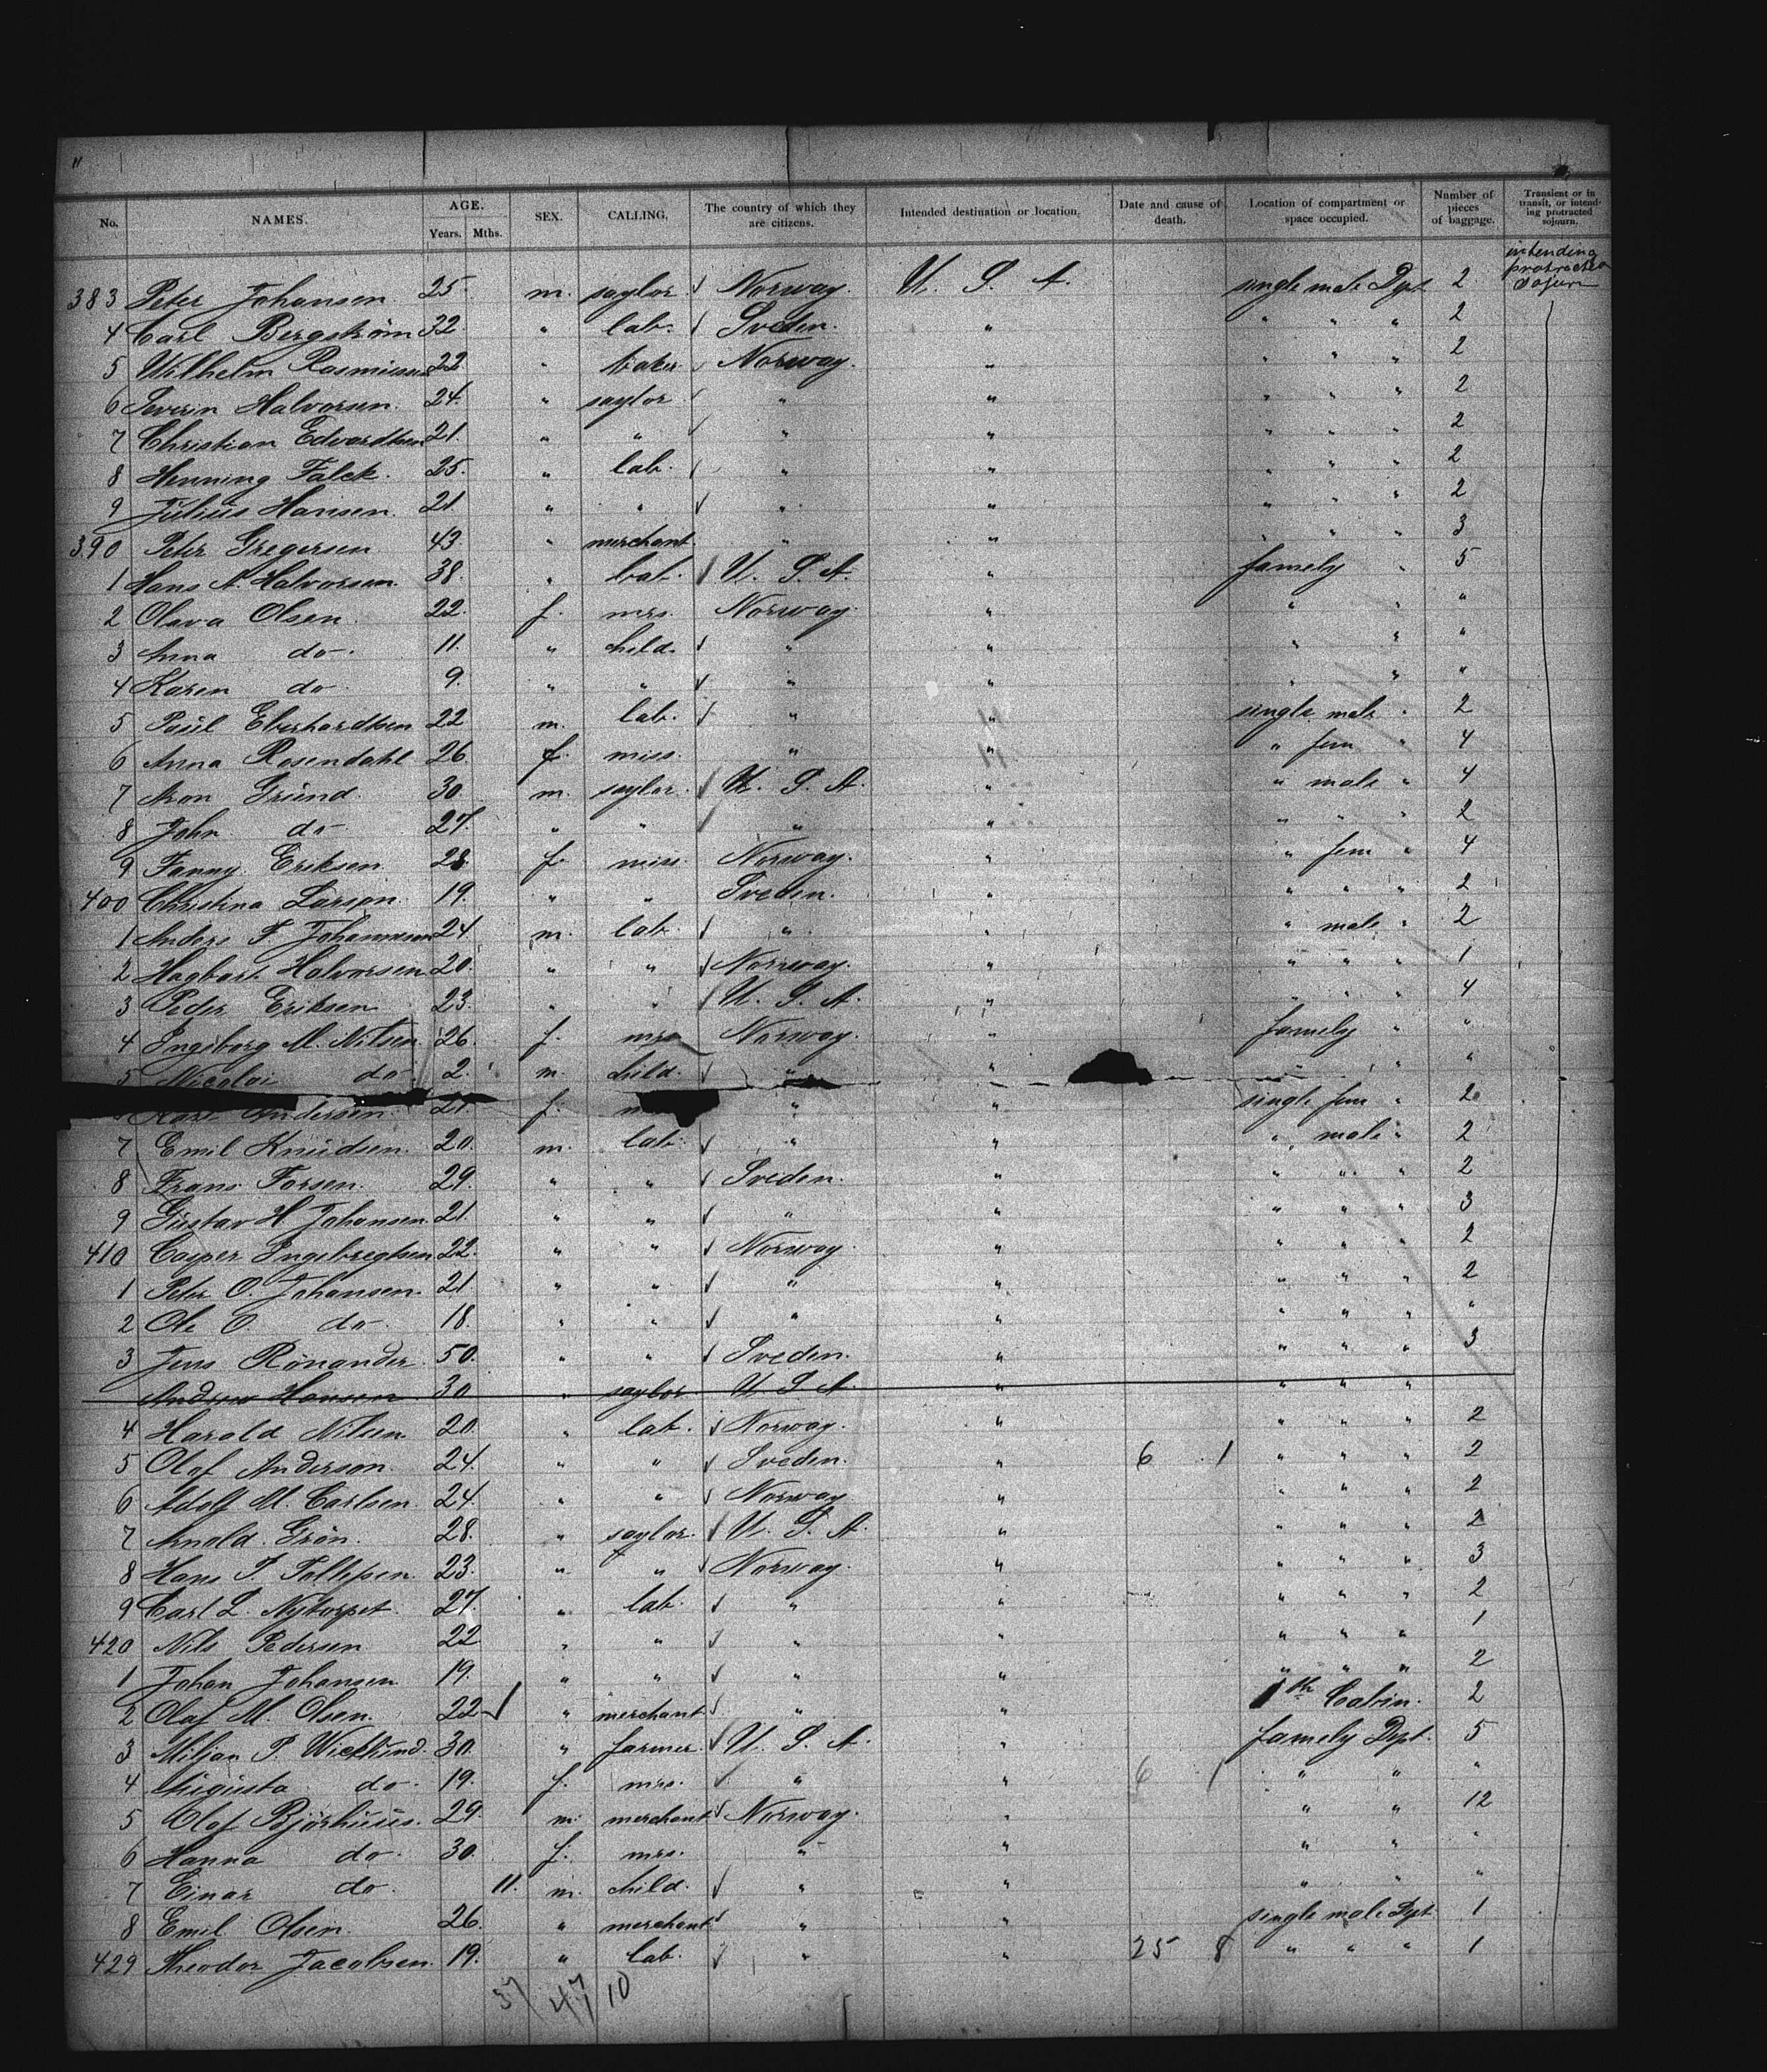 "
No. NAMES. AGE. Years. Mths. SEX. CALLING. The country of which they are citizens. Intended destination or location. Date and cause of death. Location of compartment or space occupied. Number of pieces of baggage. Transient or in transit, or intending protracted sojourn.
383 Peter Johansen 25 m. saylor Norway. U. S. A. single male Dpt 2 intending protracted sojurn
4 Carl Bergström 32 " lab. Sveden. " " " " 2
5 Wilhelm Rasmissen 22 " baker Norway. " " " " 2
6 Severin Halvorsen. 24. " saylor " " " " " 2
7 Christian Edvardsen 21. " " " " " " " 2
8 Henning Falck. 25. " lab. " " " " " 2
9 Julius Hansen. 21 " " " " " " " 2
390 Peter Gregersen 43. " merchant. " " " " " 3
1 Hans A. Halvorsen. 38. " lab. U. S. A. " famely " 5
2 Olava Olsen. 22. f. mrs. Norway. " " " "
3 Anna do. 11. " child. " " " " "
4 Karen do. 9. " " " " " " "
5 Paul Eberhardtsen 22 m. lab. " " single male " 2
6 Anna Rosendahl 26 f. miss. " " " fem " 4
7 Aron Grund. 30 m. saylor. U. S. A. " " male " 4
8 John do 27. " " " " " " " 2
9 Fanny Eriksen 28. f. miss. Norway. " " fem " 4
400 Christina Larson. 19. " " Sveden. " " " " 2
1 Anders F. Johannesen 24 m. lab. " " " male " 2
2 Hagbart Halvorsen 20. " " Norway. " " " " 1
3 Peder Eriksen 23. " " U. S. A. " " " " 4
4 Ingeborg M. Nilsen. 26. f. mrs Norway. " famely " "
5 Nicolai do 2. m. child. " " " " "
Andersen. 21. f. " " single fem " 2
7 Emil Knudsen. 20. m. lab. " " " male " 2
8 Frans Forsen. 29. " " Sveden. " " " " 2
9 Gustav H. Johansen. 21. " " " " " " " 3
410 Casper Engebregtsen 22. " " Norway. " " " " 2
1 Peter O. Johansen. 21 " " " " " " " 2
2 Ole O. do. 18. " " " " " " " "
3 Jens Rönander. 50. " " Sveden. " " " " 3
Andrew Hansen 30 " saylor U S A. " " " "
4 Harald Nilsen 20. " lab. Norway. " " " " 2
5 Olof Anderson. 24. " " Sveden. " 6 1 " " " 2
6 Adolf M. Carlsen 24. " " Norway " " " " 2
7 Arnold Grön. 28. " saylor. U. S. A. " " " " 2
8 Hans T. Tollefsen. 23. " " Norway. " " " " 3
9 Carl L. Nytorpet. 27. " lab. " " " " " 2
420 Nils Pedersen 22 " " " " " " " 1
1 Johan Johansen 19. " " " " " " " 2
2 Olaf M. Olsen. 22 " merchant " " 1th Cabin. 2
3 Miljan P. Wicklund. 30. " farmer. U. S. A. " famely Dpt. 5
4 Augusta do. 19. f. mrs. " " 6 1 " " "
5 Olaf Bjorhuus. 29. m. merchant Norway. " " " 12
6 Hanna do. 30. f. mrs. " " " " "
7 Einar do. 11. m. child. " " " " "
8 Emil Olsen. 26. " merchant " " single male Dpt. 1
429 Theodor Jacobsen. 19. " lab. " " 25 8 " " " 1
37 47 10